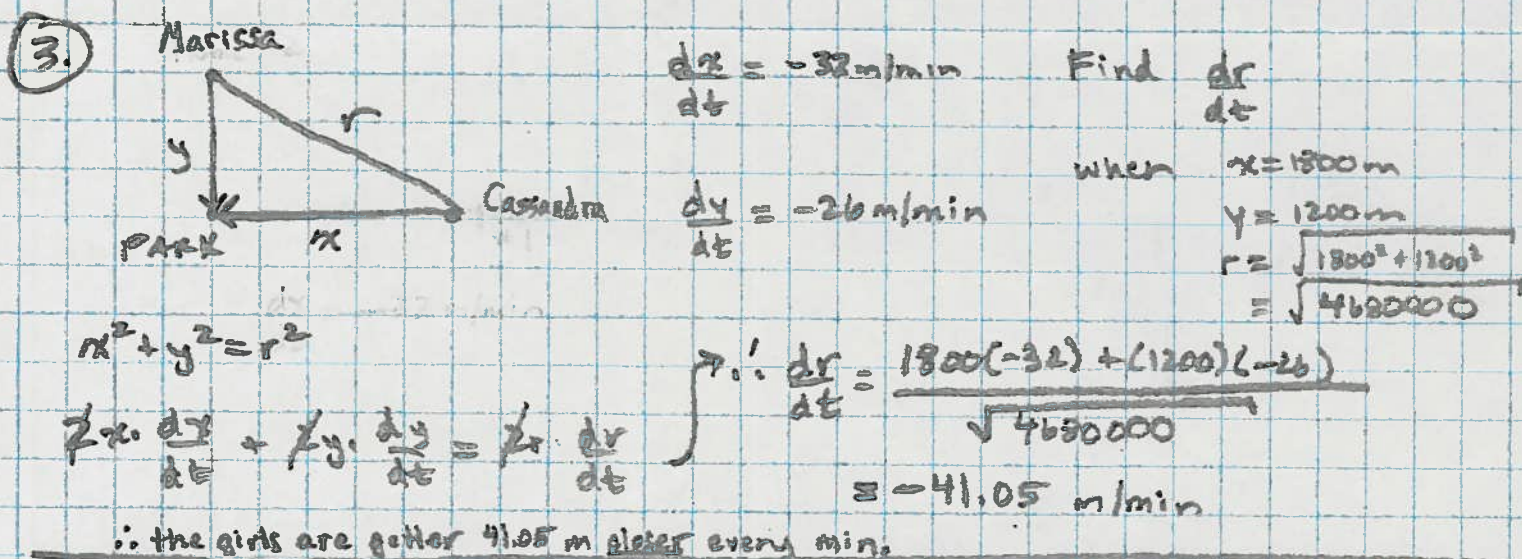 3.
Marissa
y
r
Cassandra
PARK
x
dx/dt = -32 m/min
dy/dt = -26 m/min
Find dr/dt
when x = 1800 m
y = 1200 m
r = √(1800² + 1200²)
= √4680000
x² + y² = r²
2x · dx/dt + 2y · dy/dt = 2r dr/dt
∴ dr/dt = (1800(-32) + (1200)(-26)) / √4680000
= -41.05 m/min
∴ the girls are getter 41.05 m closer every min.